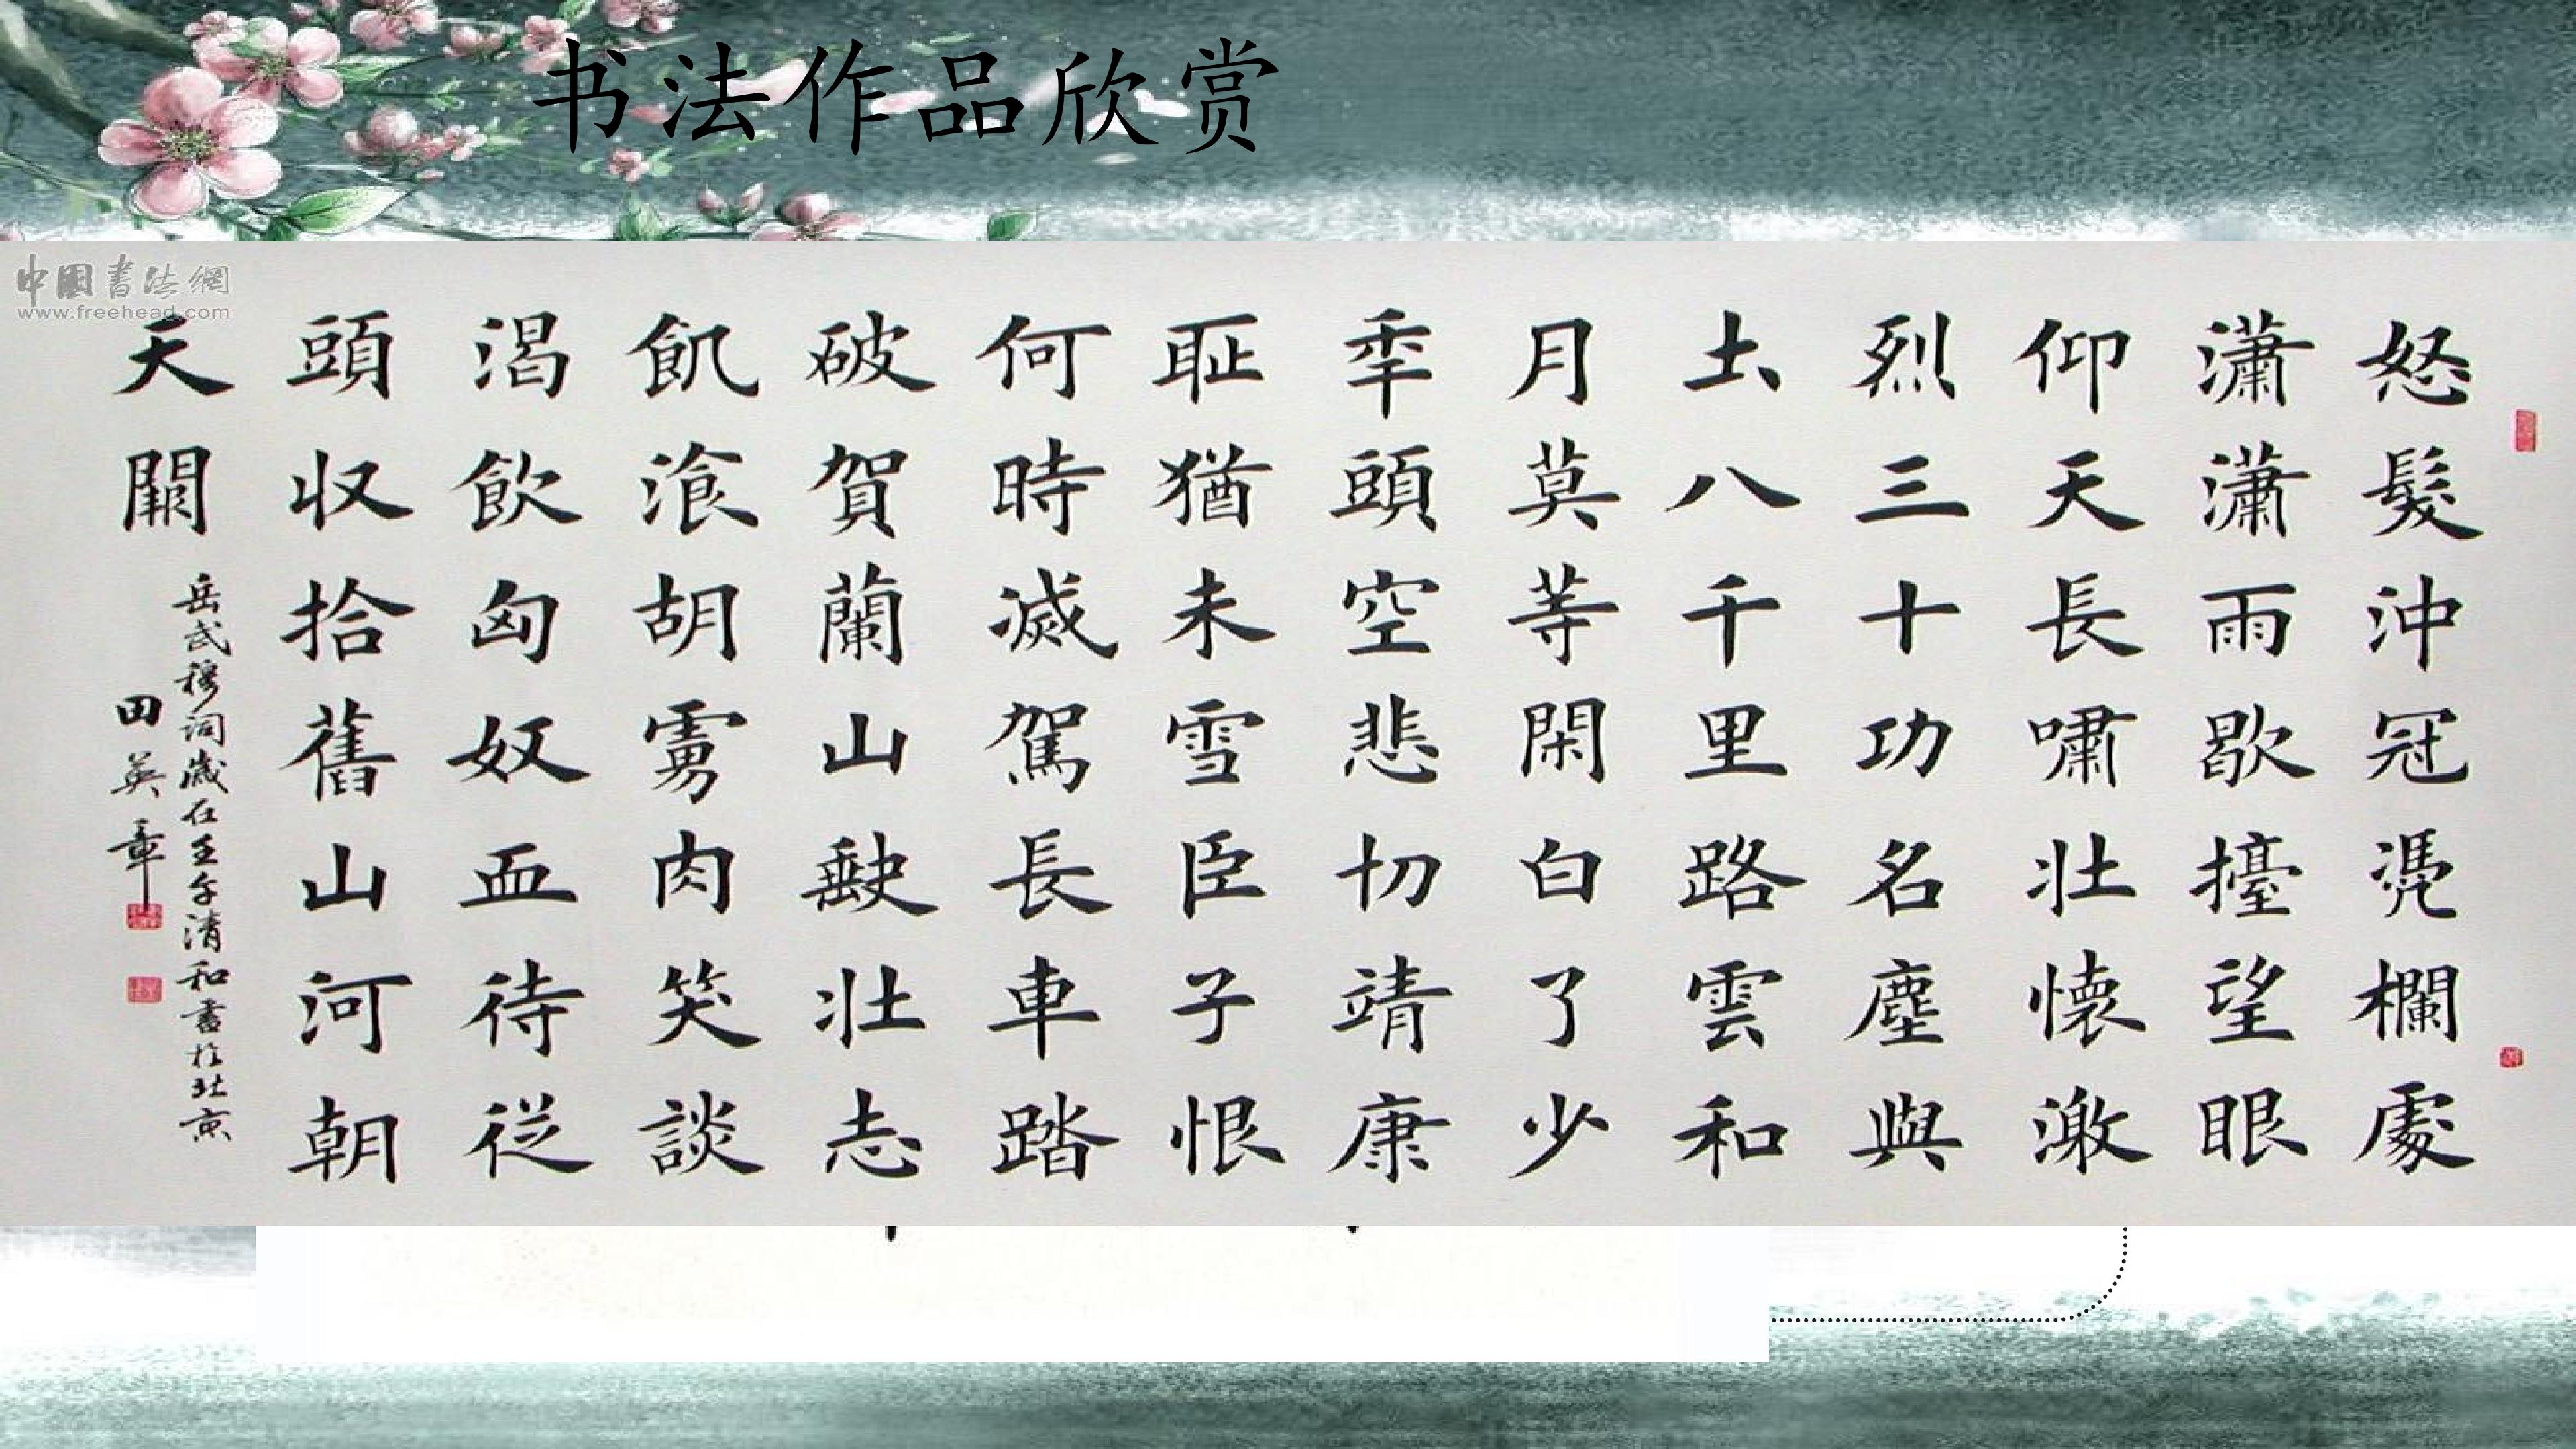 书法作品欣赏
中國書法網
www.freehead.com
怒髮沖冠凴欄處
瀟瀟雨歇擡望眼
仰天長嘯壯懷激
烈三十功名塵與
土八千里路雲和
月莫等閑白了少
年頭空悲切靖康
恥猶未雪臣子恨
何時滅駕長車踏
破賀蘭山缺壯志
飢湌胡虜肉笑談
渴飲匈奴血待從
頭收拾舊山河朝
天闕
岳武穆詞歲在壬午清和書於北京
田英章